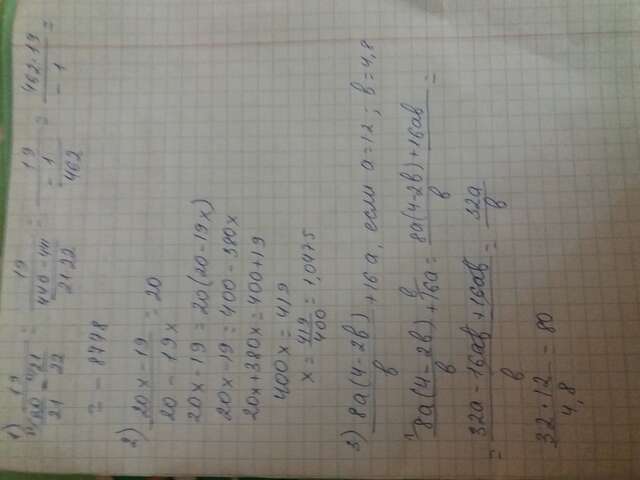 1) 19/(20/21 - 21/22) = 19/((440 - 441)/(21·22)) = 19/(-1/462) = (462·19)/(-1) =
= -8778
2) (20x - 19)/(20 - 19x) = 20
20x - 19 = 20(20 - 19x)
20x - 19 = 400 - 380x
20x + 380x = 400 + 19
400x = 419
x = 419/400 = 1,0475
3) 8a(4-2b)/b + 16a, если a = 12; b = 4,8
8a(4-2b)/b + 16a = (8a(4-2b) + 16ab)/b =
= (32a - 16ab + 16ab)/b = 32a/b
(32·12)/4,8 = 80